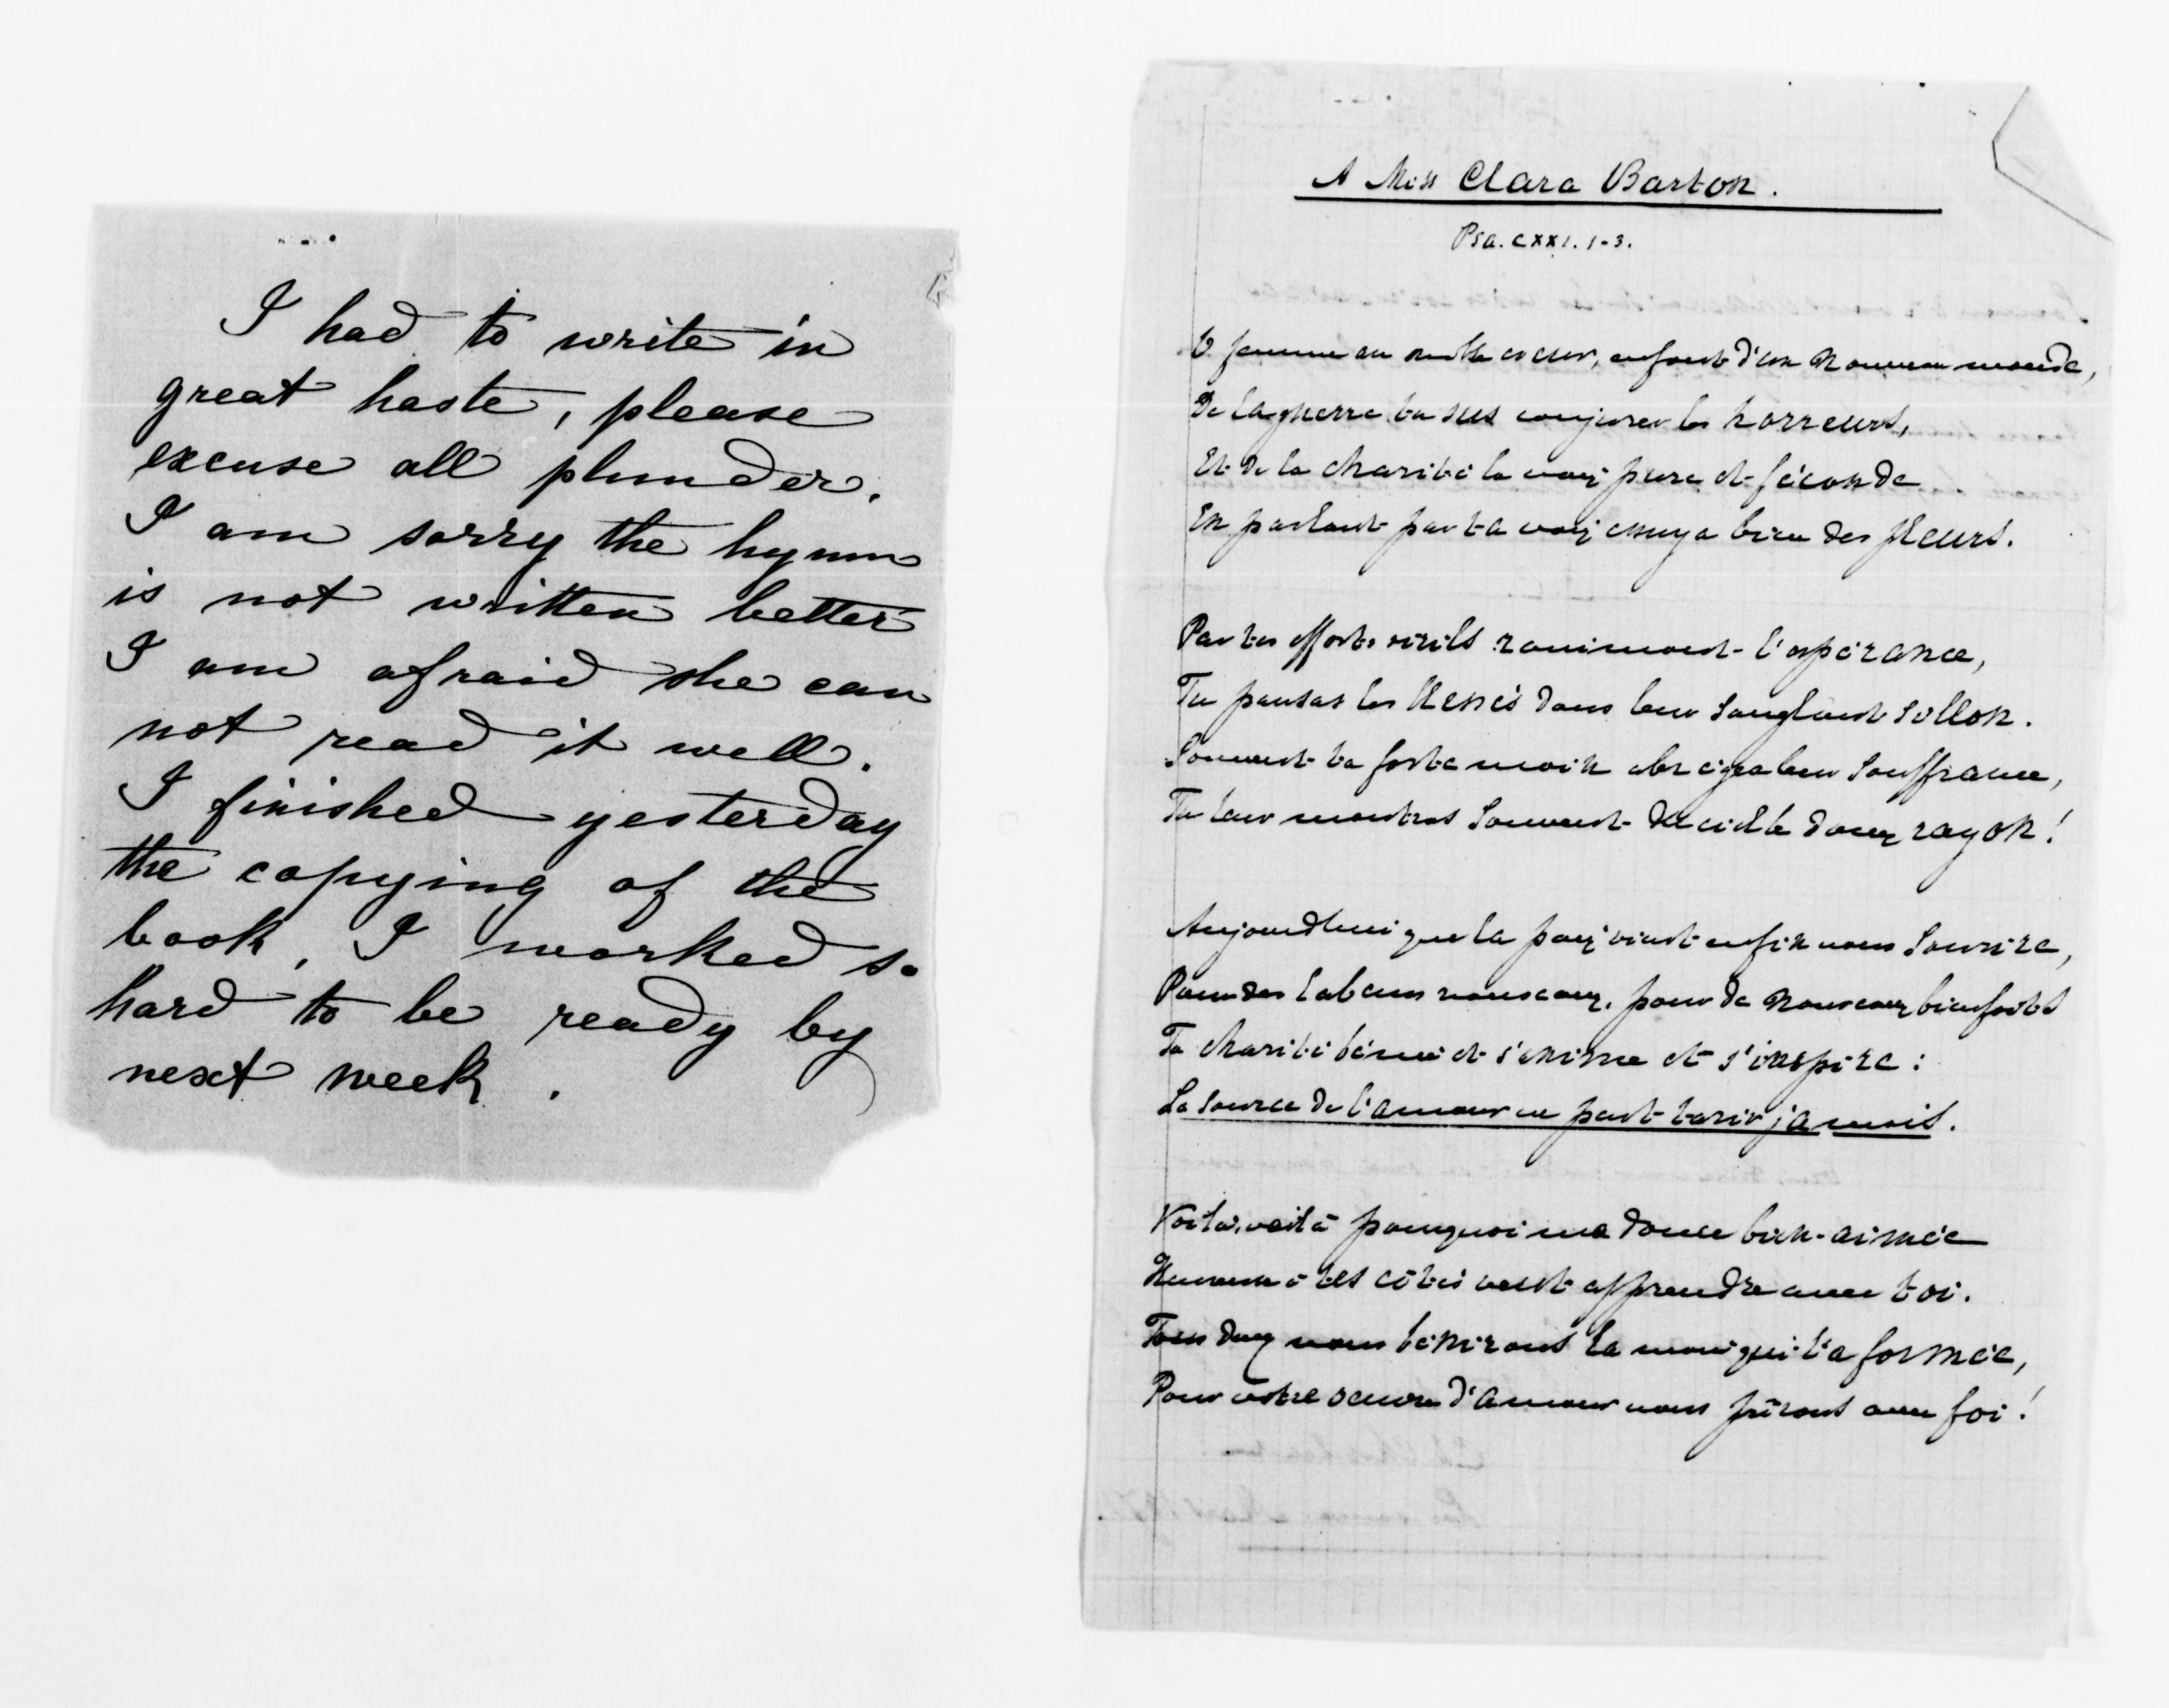 I had to write in
great haste, please
excuse all plunder.
I am sorry the hymn
is not written better
I am afraid she can
not read it well.
I finished yesterday
the copying of the
book, I worked so
hard to be ready by
next week.
A Miss Clara Barton.
Psa. CXXI. 1-3.
O femme au noble coeur, enfant d'un Nouveau monde,
De la guerre tu sus conjurer les horreurs,
Et de la charité la voix pure et féconde
En parlant par ta voix essuya bien des pleurs.
Par tes efforts virils ranimant l'espérance,
Tu pansas les blessés dans leur sanglant sillon.
Souvent ta forte main abrégea leur souffrance,
Tu leur montras souvent du ciel le doux rayon!
Aujourdhui que la paix vient enfin nous sourire,
Pour des labeurs nouveaux, pour de nouveaux bienfaits
Ta charité bénie et s'anime et s'inspire:
La source de l'amour ne peut tarir jamais.
Voilà, voilà pourquoi ma douce bien-aimée
Heureuse à tes côtés veut apprendre avec toi.
Tous deux nous bénirons la main qui t'a formée,
Pour votre oeuvre d'amour nous prîrons avec foi!